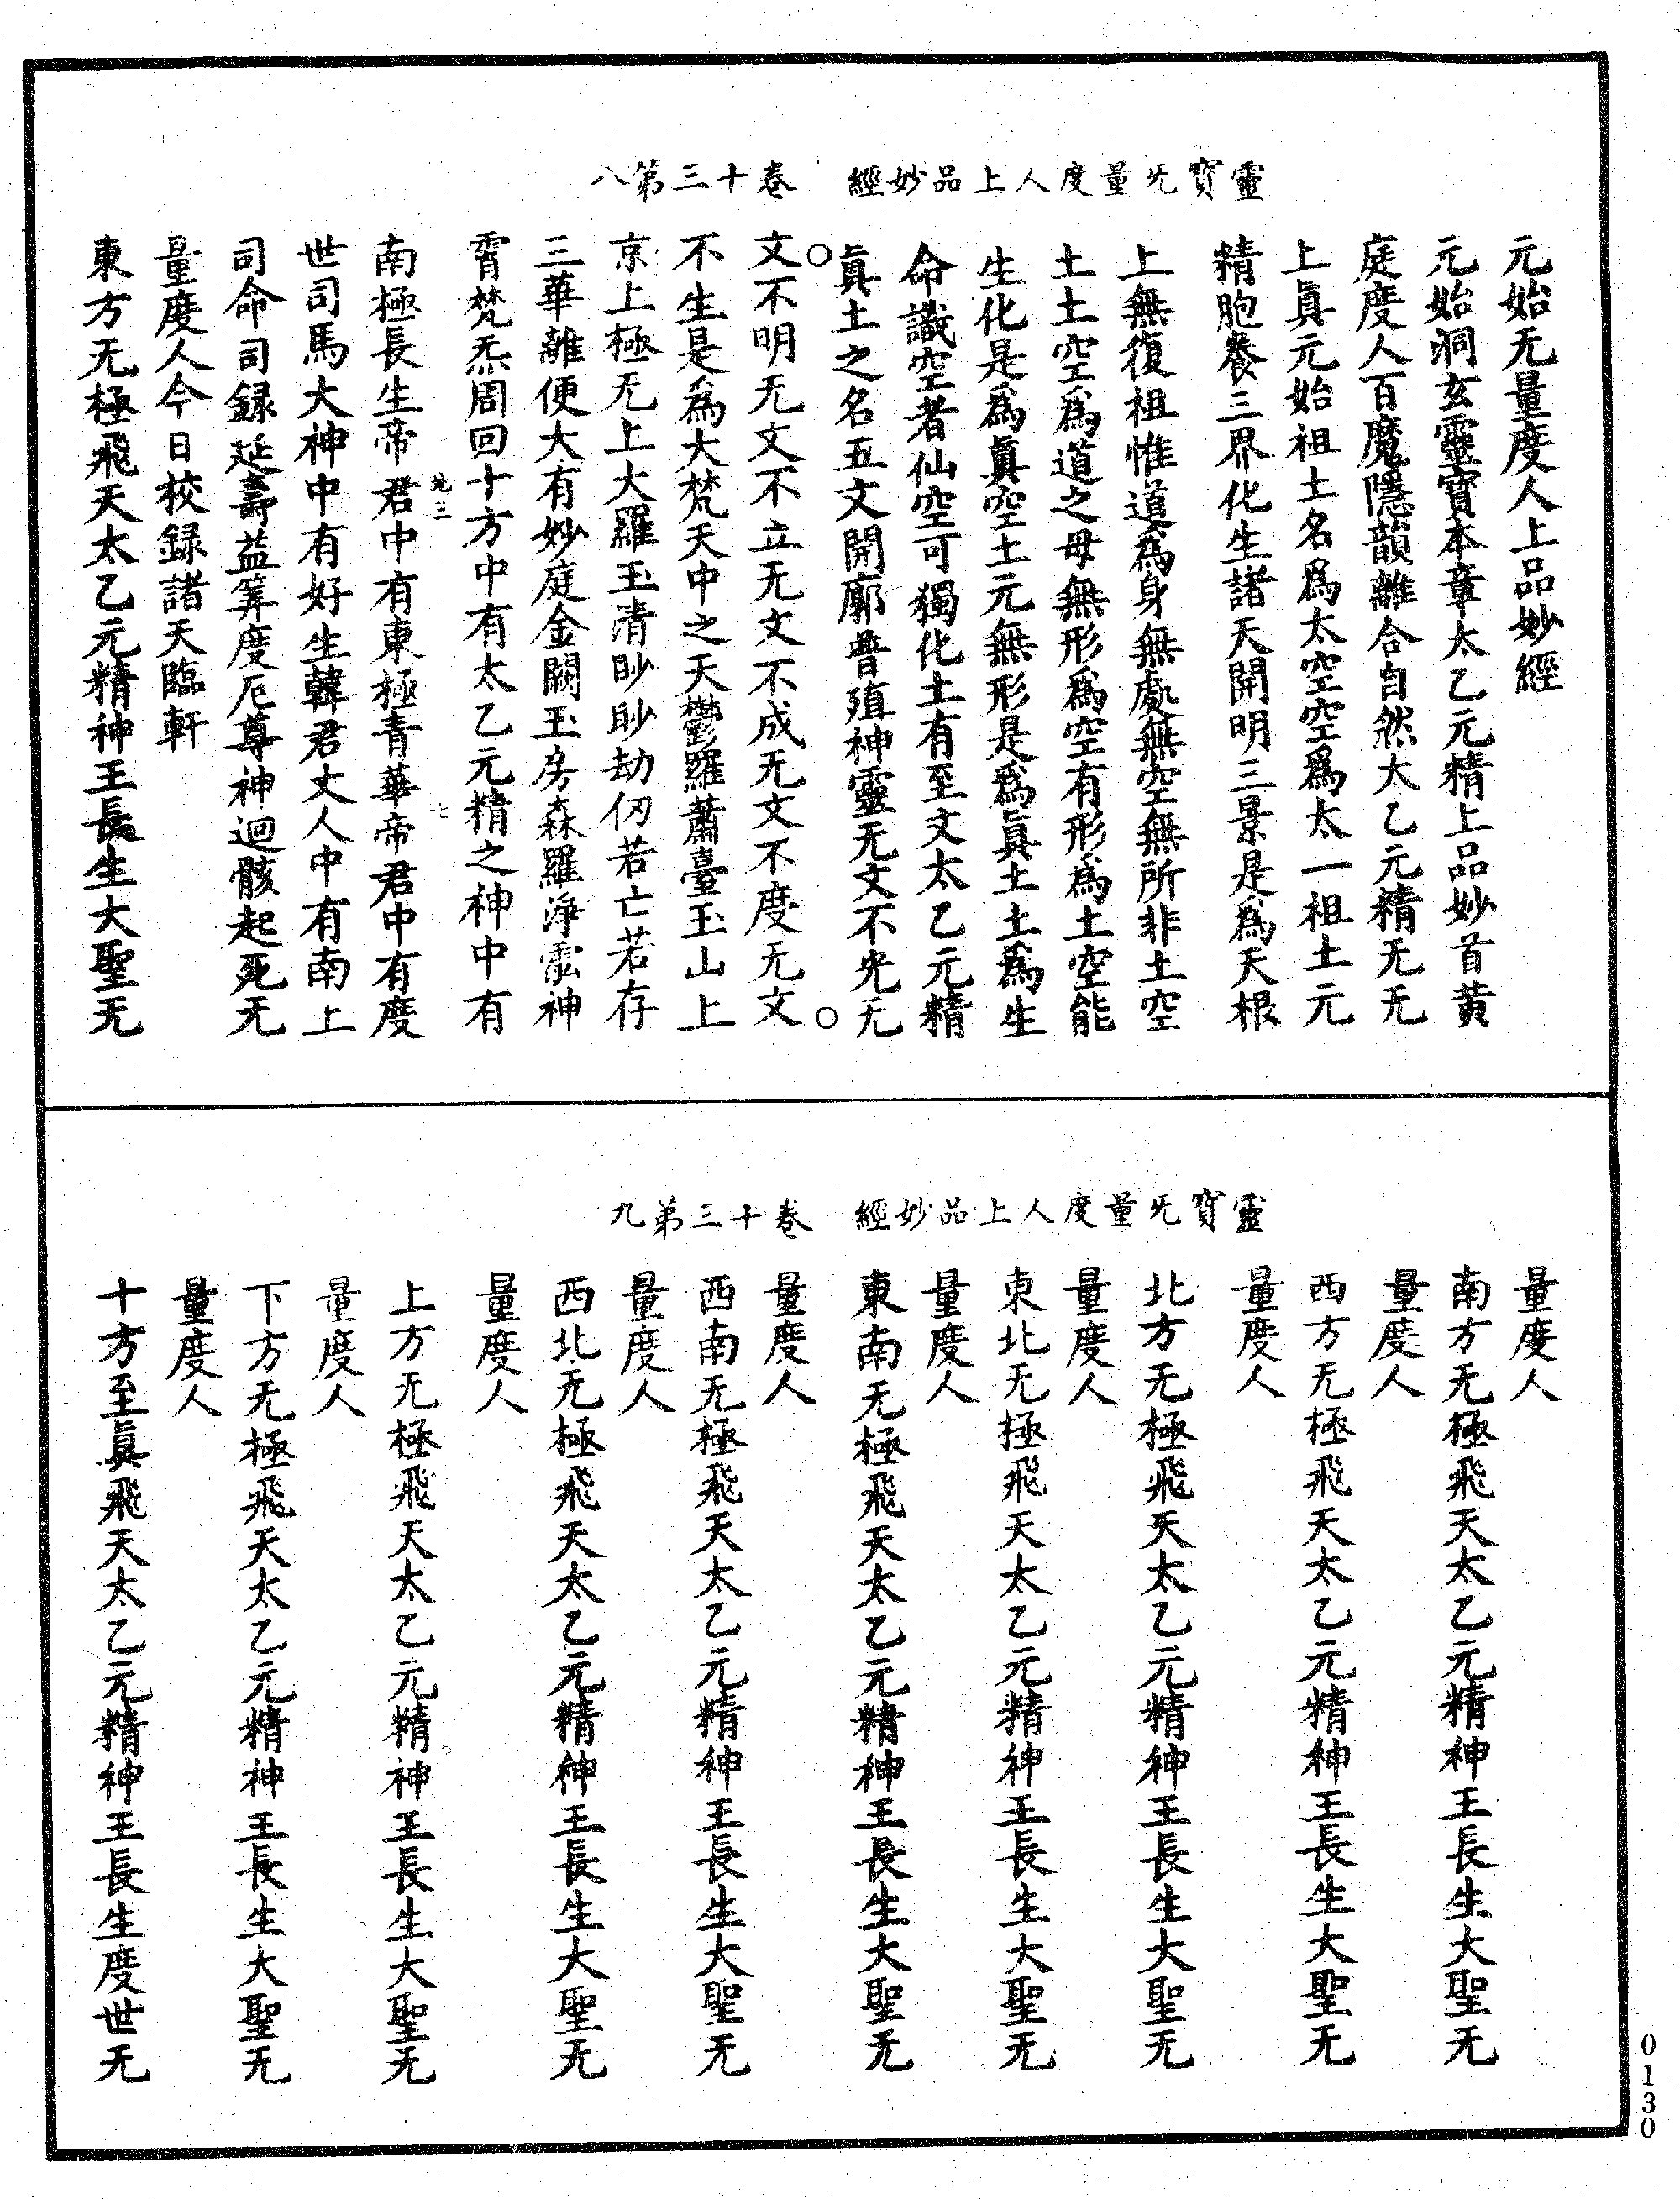 靈寶无量度人上品妙經　卷十三第八
元始无量度人上品妙經
元始洞玄靈寶本章太乙元精上品妙首黃
庭度人百魔隱韻離合自然太乙元精无无
上眞元始祖土名爲太空空爲太一祖土元
精胞養三界化生諸天開明三景是爲天根
上無復祖惟道爲身無處無空無所非土空
土土空爲道之母無形爲空有形爲土空能
生化是爲眞空土元無形是爲眞土土爲生
命識空者仙空可獨化土有至文太乙元精
眞土之名五文開廓普殖神靈无文不光无
文不明无文不立无文不成无文不度无文
不生是爲大梵天中之天鬱羅蕭臺玉山上
京上極无上大羅玉清眇眇劫仞若亡若存
三華離便大有妙庭金闕玉房森羅淨泓神
霄梵炁周回十方中有太乙元精之神中有
南極長生帝君中有東極青華帝君中有度
世司馬大神中有好生韓君丈人中有南上
司命司録延壽益筭度厄尊神迴骸起死无
量度人今日校録諸天臨軒
東方无極飛天太乙元精神王長生大聖无
靈寶无量度人上品妙經　卷十三第九
量度人
南方无極飛天太乙元精神王長生大聖无
量度人
西方无極飛天太乙元精神王長生大聖无
量度人
北方无極飛天太乙元精神王長生大聖无
量度人
東北无極飛天太乙元精神王長生大聖无
量度人
東南无極飛天太乙元精神王長生大聖无
量度人
西南无極飛天太乙元精神王長生大聖无
量度人
西北无極飛天太乙元精神王長生大聖无
量度人
上方无極飛天太乙元精神王長生大聖无
量度人
下方无極飛天太乙元精神王長生大聖无
量度人
十方至眞飛天太乙元精神王長生度世无
0130